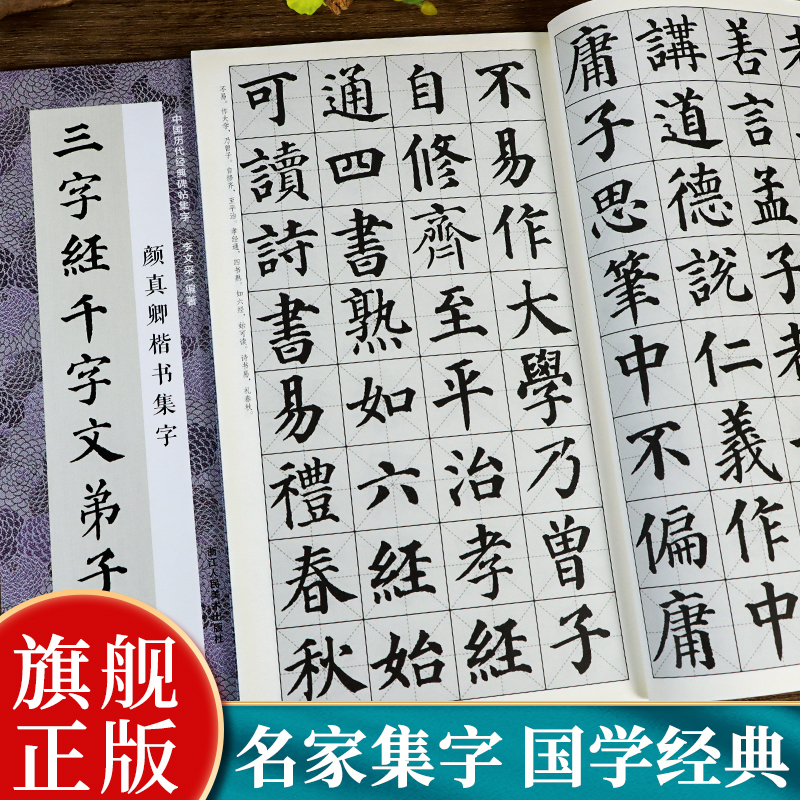 中国历代经典碑帖集字 李文采 编著
三字経千字文弟子
颜真卿楷书集字
善言孟子
講道德説仁義作中
庸子思筆中不偏庸
不易作大學乃曾子
自修齊至平治孝經
通四書熟如六經始
可讀詩書易禮春秋
不易，作大学，乃曾子，自修齐，至平治。孝经通，四书熟，如六经，始可读。诗书易，礼春秋，
旗舰
正版
名家集字 国学经典